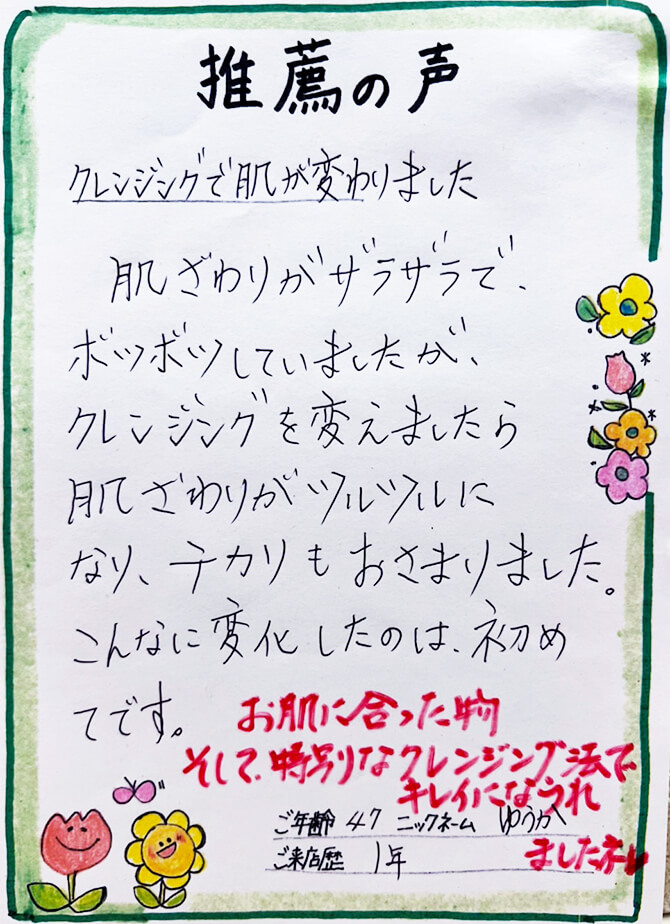 推薦の声
クレンジングで肌が変わりました
肌ざわりがザラザラで、
ボツボツしていましたが、
クレンジングを変えましたら
肌ざわりがツルツルに
なり、テカリもおさまりました。
こんなに変化したのは、初め
てです。
お肌に合った物
そして、特別なクレンジング法で
キレイになられ
ましたネ
ご年齢 47 ニックネーム ゆうか
ご来店歴 1年